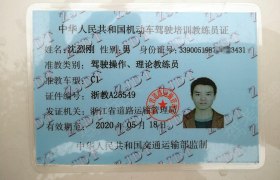 中华人民共和国机动车驾驶培训教练员证
性别：男 身份证号：
准教类别：驾驶操作、理论教练员
准教车型：C1
证件编号：浙教A28549
发证机关：浙江省道路运输管理局
有效期至：2020年05月18日
中华人民共和国交通运输部监制